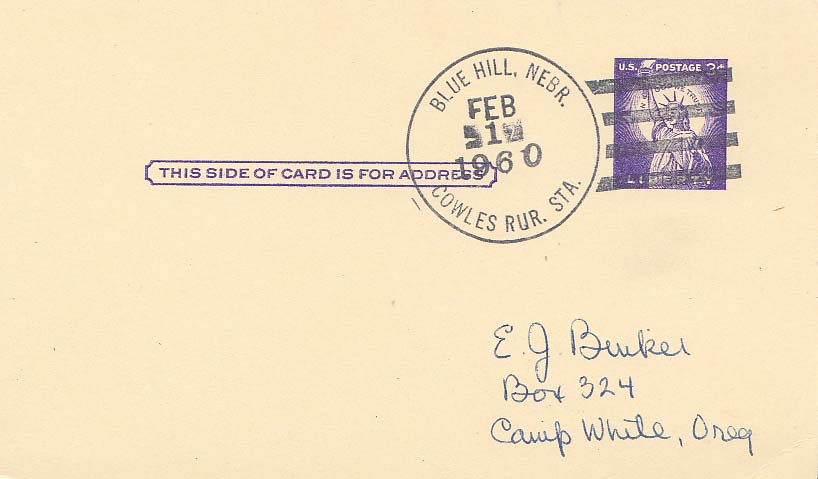 U.S. POSTAGE 3¢
IN GOD WE TRUST
LIBERTY
BLUE HILL, NEBR.
FEB
1
1960
COWLES RUR. STA.
THIS SIDE OF CARD IS FOR ADDRESS
E. J.
Box 324
Camp White, Oreg